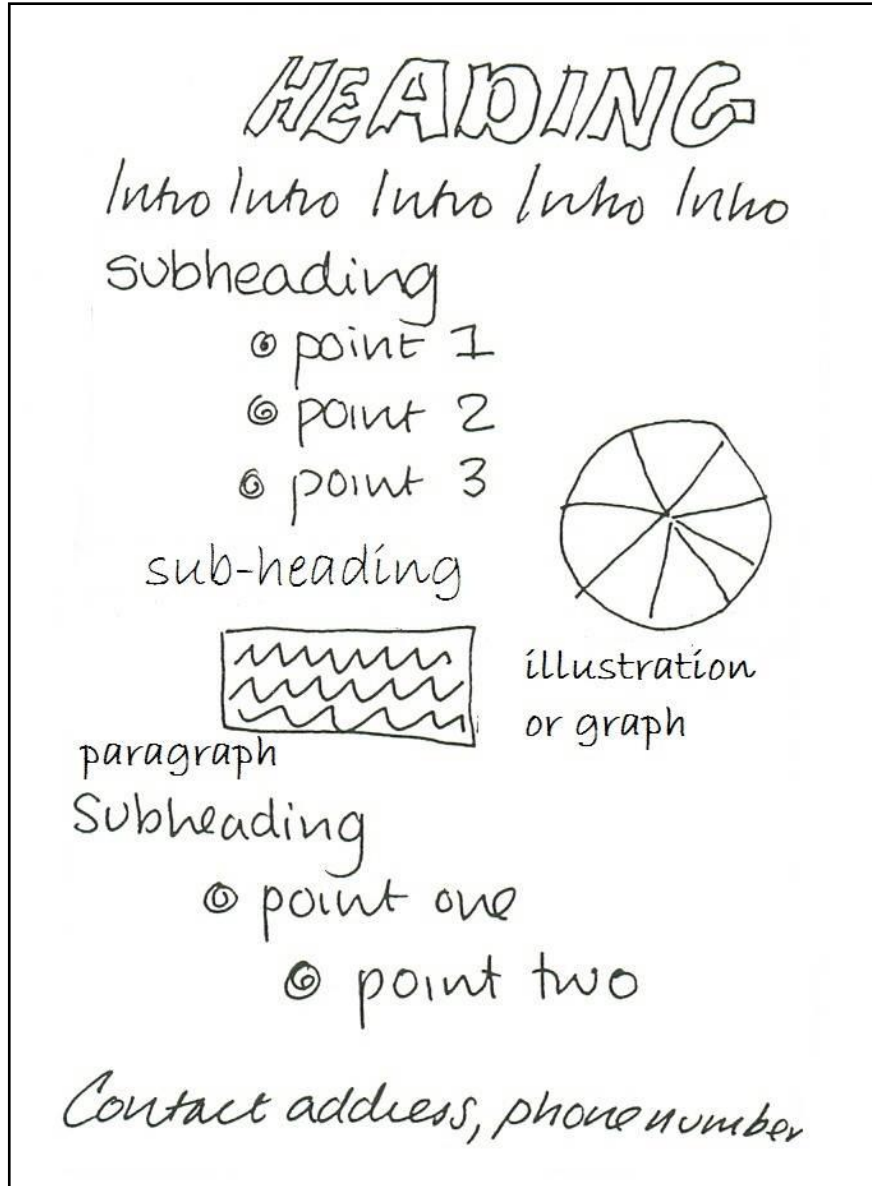 HEADING
Intro Intro Intro Intro Intro
subheading
point 1
point 2
point 3
sub-heading
illustration
or graph
paragraph
Subheading
point one
point two
Contact address, phone number